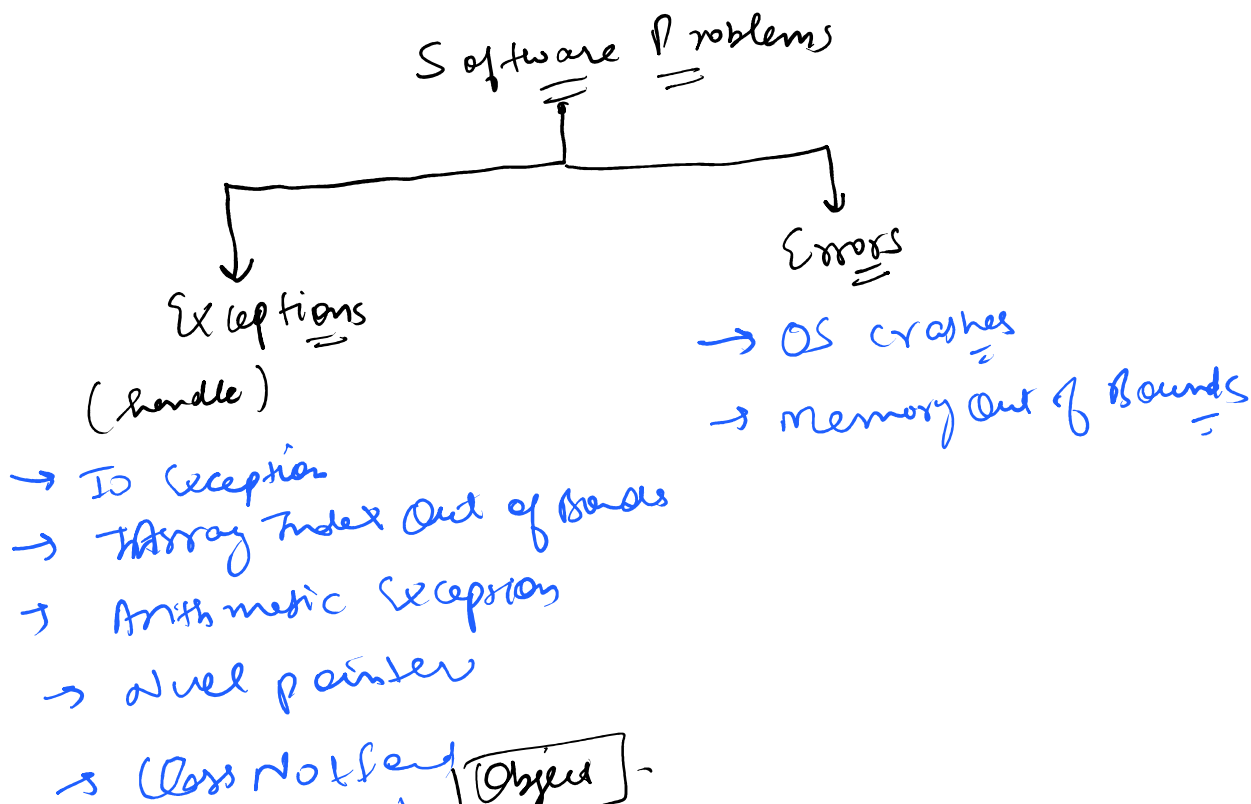 Software Problems
Exceptions
(handle)
→ IO Exception
→ Array Index Out of Bounds
→ Arithmetic Exception
→ Null pointer
→ Class Not Found
Object
Errors
→ OS crashes
→ Memory Out of Bounds